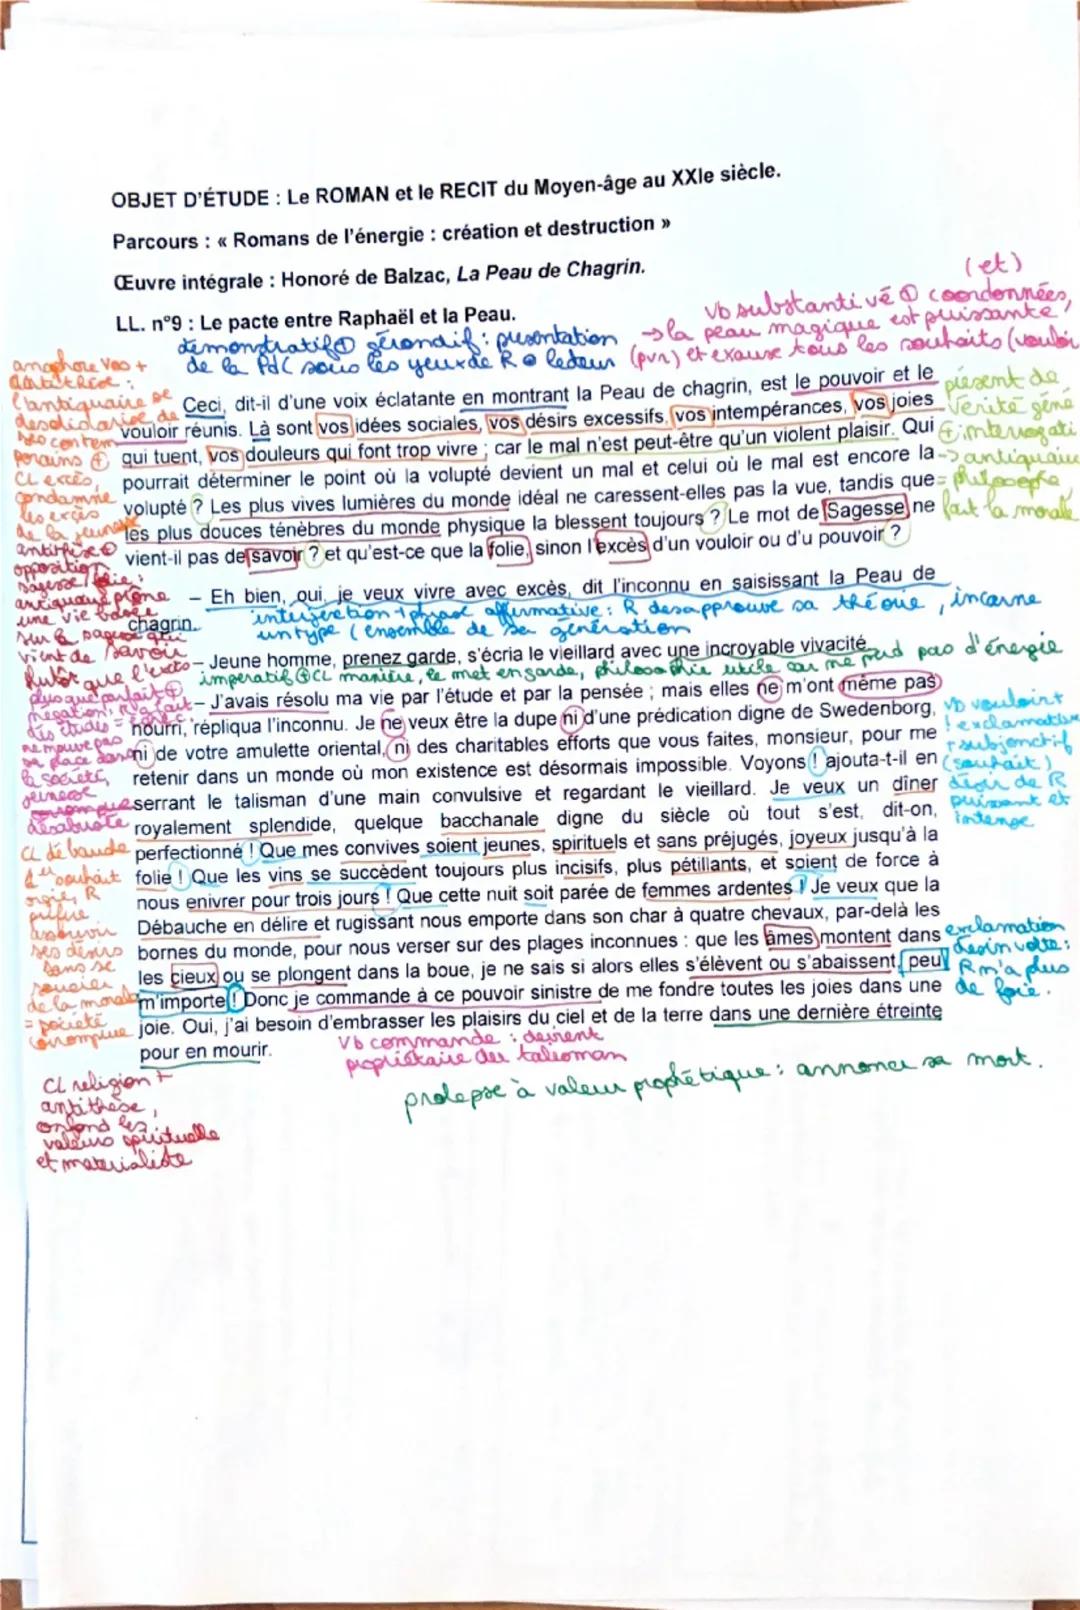 OBJET D'ÉTUDE : Le ROMAN et le RECIT du Moyen-âge au XXIe siècle.
Parcours : « Romans de l'énergie : création et destruction »
Œuvre intégrale : Honoré de Balzac, La Peau de Chagrin.
LL. n°9 : Le pacte entre Raphaël et la Peau.
(et)
vb substantivé ⊕ coordonnées,
→ la peau magique est puissante,
(pvr) et exauce tous les souhaits (vouloir
démonstratif ⊕ gérondif : présentation
de la PdC sous les yeux de R ⊕ lecteur
anaphore vos +
antithèse :
l'antiquaire se
désolidarise de
ses contem
porains ⊕
CL excès,
condamne
les excès
de la jeunesse
Ceci, dit-il d'une voix éclatante en montrant la Peau de chagrin, est le pouvoir et le
vouloir réunis. Là sont vos idées sociales, vos désirs excessifs, vos intempérances, vos joies
qui tuent, vos douleurs qui font trop vivre ; car le mal n'est peut-être qu'un violent plaisir. Qui
pourrait déterminer le point où la volupté devient un mal et celui où le mal est encore la
volupté ? Les plus vives lumières du monde idéal ne caressent-elles pas la vue, tandis que
les plus douces ténèbres du monde physique la blessent toujours ? Le mot de Sagesse ne
vient-il pas de savoir ? et qu'est-ce que la folie, sinon l'excès d'un vouloir ou d'u pouvoir ?
présent de
vérité géné
⊕ interrogati
→ antiquaire
= philosophe
fait la morale
antithèse ⊕
opposition
sagesse/folie :
antiquaire prône
une vie basée
sur la sagesse qui
vient de savoir
plutôt que l'excès
– Eh bien, oui, je veux vivre avec excès, dit l'inconnu en saisissant la Peau de
chagrin.
interjection + phrase affirmative : R désapprouve sa théorie, incarne
un type (ensemble de sa génération
– Jeune homme, prenez garde, s'écria le vieillard avec une incroyable vivacité.
impératif ⊕ CL manière, le met en garde, philosophie utile car ne perd pas d'énergie
plus que parfait ⊕
négation : R a fait
des études = échec :
ne trouve pas
sa place dans
la société,
jeunesse
désabusée
– J'avais résolu ma vie par l'étude et par la pensée ; mais elles ne m'ont même pas
nourri, répliqua l'inconnu. Je ne veux être la dupe ni d'une prédication digne de Swedenborg,
ni de votre amulette oriental, ni des charitables efforts que vous faites, monsieur, pour me
retenir dans un monde où mon existence est désormais impossible. Voyons ! ajouta-t-il en
serrant le talisman d'une main convulsive et regardant le vieillard. Je veux un dîner
royalement splendide, quelque bacchanale digne du siècle où tout s'est, dit-on,
perfectionné ! Que mes convives soient jeunes, spirituels et sans préjugés, joyeux jusqu'à la
folie ! Que les vins se succèdent toujours plus incisifs, plus pétillants, et soient de force à
nous enivrer pour trois jours ! Que cette nuit soit parée de femmes ardentes ! Je veux que la
Débauche en délire et rugissant nous emporte dans son char à quatre chevaux, par-delà les
bornes du monde, pour nous verser sur des plages inconnues : que les âmes montent dans
les cieux ou se plongent dans la boue, je ne sais si alors elles s'élèvent ou s'abaissent, peu
m'importe ! Donc je commande à ce pouvoir sinistre de me fondre toutes les joies dans une
joie. Oui, j'ai besoin d'embrasser les plaisirs du ciel et de la terre dans une dernière étreinte
pour en mourir.
vb vouloir +
! exclamative
+ subjonctif
(souhait)
désir de R
puissant et
intense
CL débauche
1er souhait
orgie, R
préfère
assouvir
ses désirs
sans se
soucier
de la morale
= société
corrompue
exclamation
désinvolte :
R n'a plus
de foi.
Vb commande : devient
propriétaire du talisman
prolepse à valeur prophétique : annonce sa mort.
CL religion +
antithèse,
confond les
valeurs spirituelle
et matérialiste